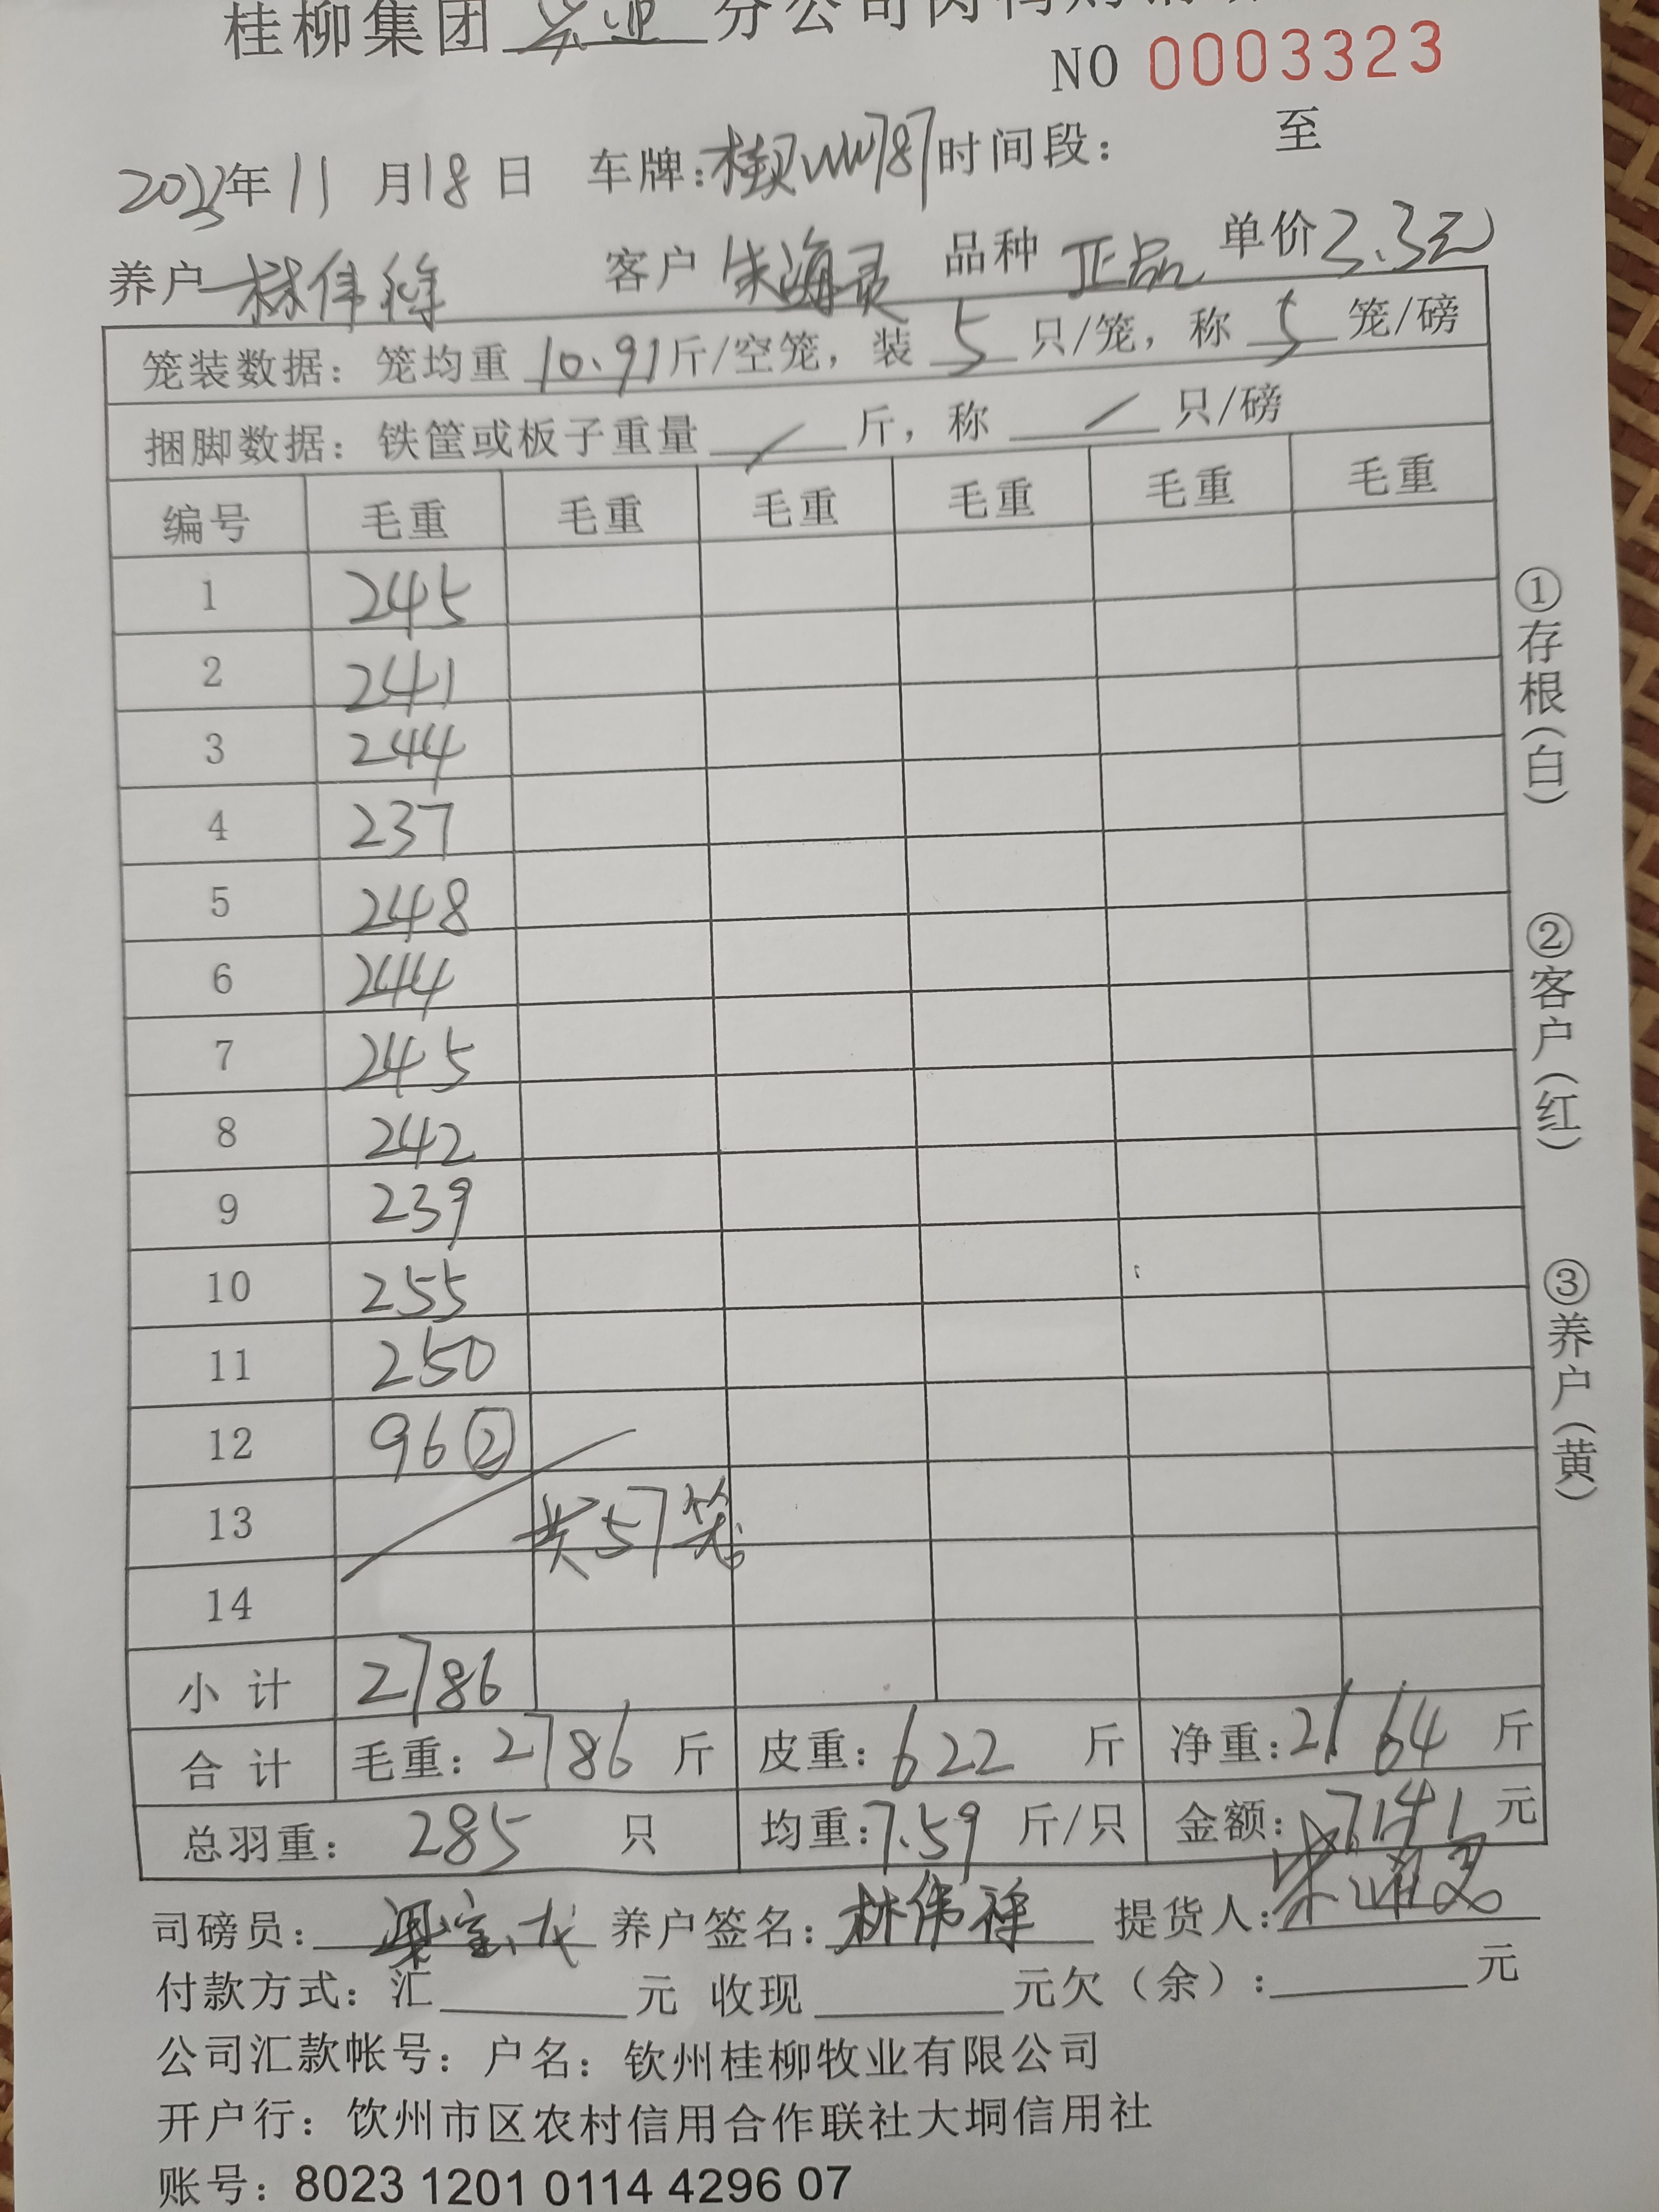 桂柳集团 兴业 分公司肉鸭购销
NO 0003323
2023年 11 月 18 日 车牌: 时间段: 至
养户 林伟锋 客户 朱海灵 品种 正品 单价 3.3元
笼装数据: 笼均重 10.91 斤/空笼, 装 5 只/笼, 称 5 笼/磅
捆脚数据: 铁筐或板子重量 / 斤, 称 / 只/磅
编号 毛重 毛重 毛重 毛重 毛重 毛重
1 245
2 241
3 244
4 237
5 248
6 244
7 245
8 242
9 239
10 255
11 250
12 96 ②
13 共57笼
14
小 计 2786
合 计 毛重: 2786 斤 皮重: 622 斤 净重: 2164 斤
总羽重: 285 只 均重: 7.59 斤/只 金额: 7141 元
司磅员: 梁宝龙 养户签名: 林伟锋 提货人:
付款方式: 汇 元 收现 元欠(余): 元
公司汇款帐号: 户名: 钦州桂柳牧业有限公司
开户行: 钦州市区农村信用合作联社大垌信用社
账号: 8023 1201 0114 4296 07
①存根(白)
②客户(红)
③养户(黄)